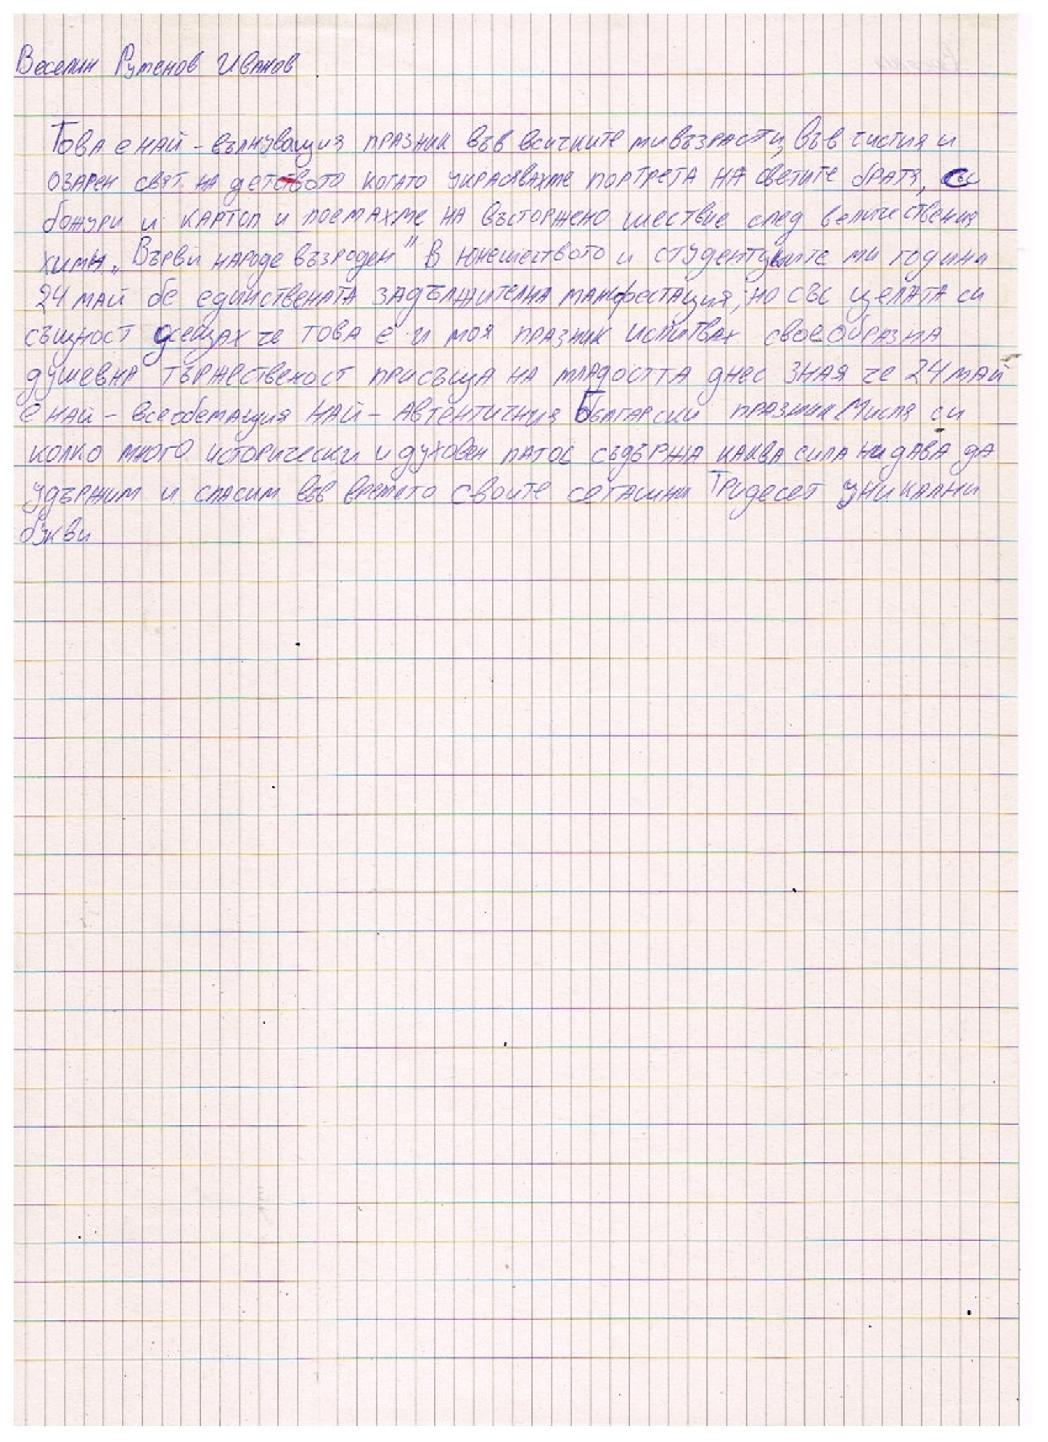 Веселин Руменов Иванов
Това е най - вълнуващия празник във всичките ми възрасти, във чистия и
озарен свят на детството когато украсявахме портрета на светите братя, със
божури и картоп и поемахме на възторжено шествие след величествения
химн „Върви народе възроден" В юношеството и студентските ми години
24 май бе единствената задължителна манифестация, но със цялата си
същност усещах че това е и моя празник изпитвах своеобразна
душевна тържественост присъща на младостта днес зная че 24 май
е най - всеобемащия най - автентичния Български празник Мисля си
колко много исторически и духовен патос съдържа каква сила ни дава да
удържим и спасим във времето своите сегашни Тридесет уникални
букви